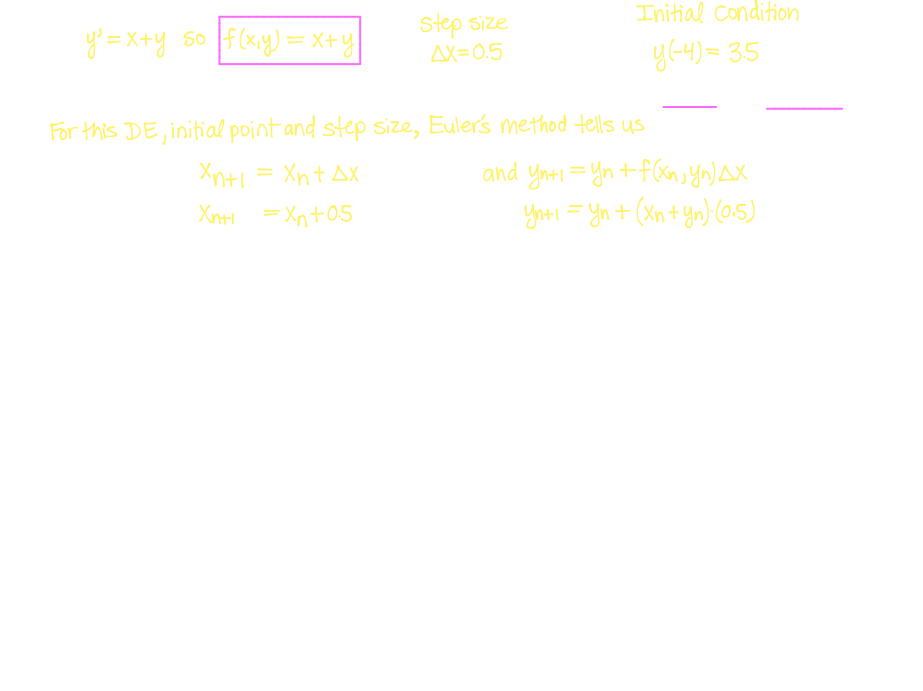 y' = x+y so f(x,y) = x+y
Step size
Δx=0.5
Initial Condition
y(-4) = 3.5
For this DE, initial point and step size, Euler's method tells us
xn+1 = xn + Δx
and yn+1 = yn + f(xn, yn)Δx
xn+1 = xn + 0.5
yn+1 = yn + (xn + yn)·(0.5)